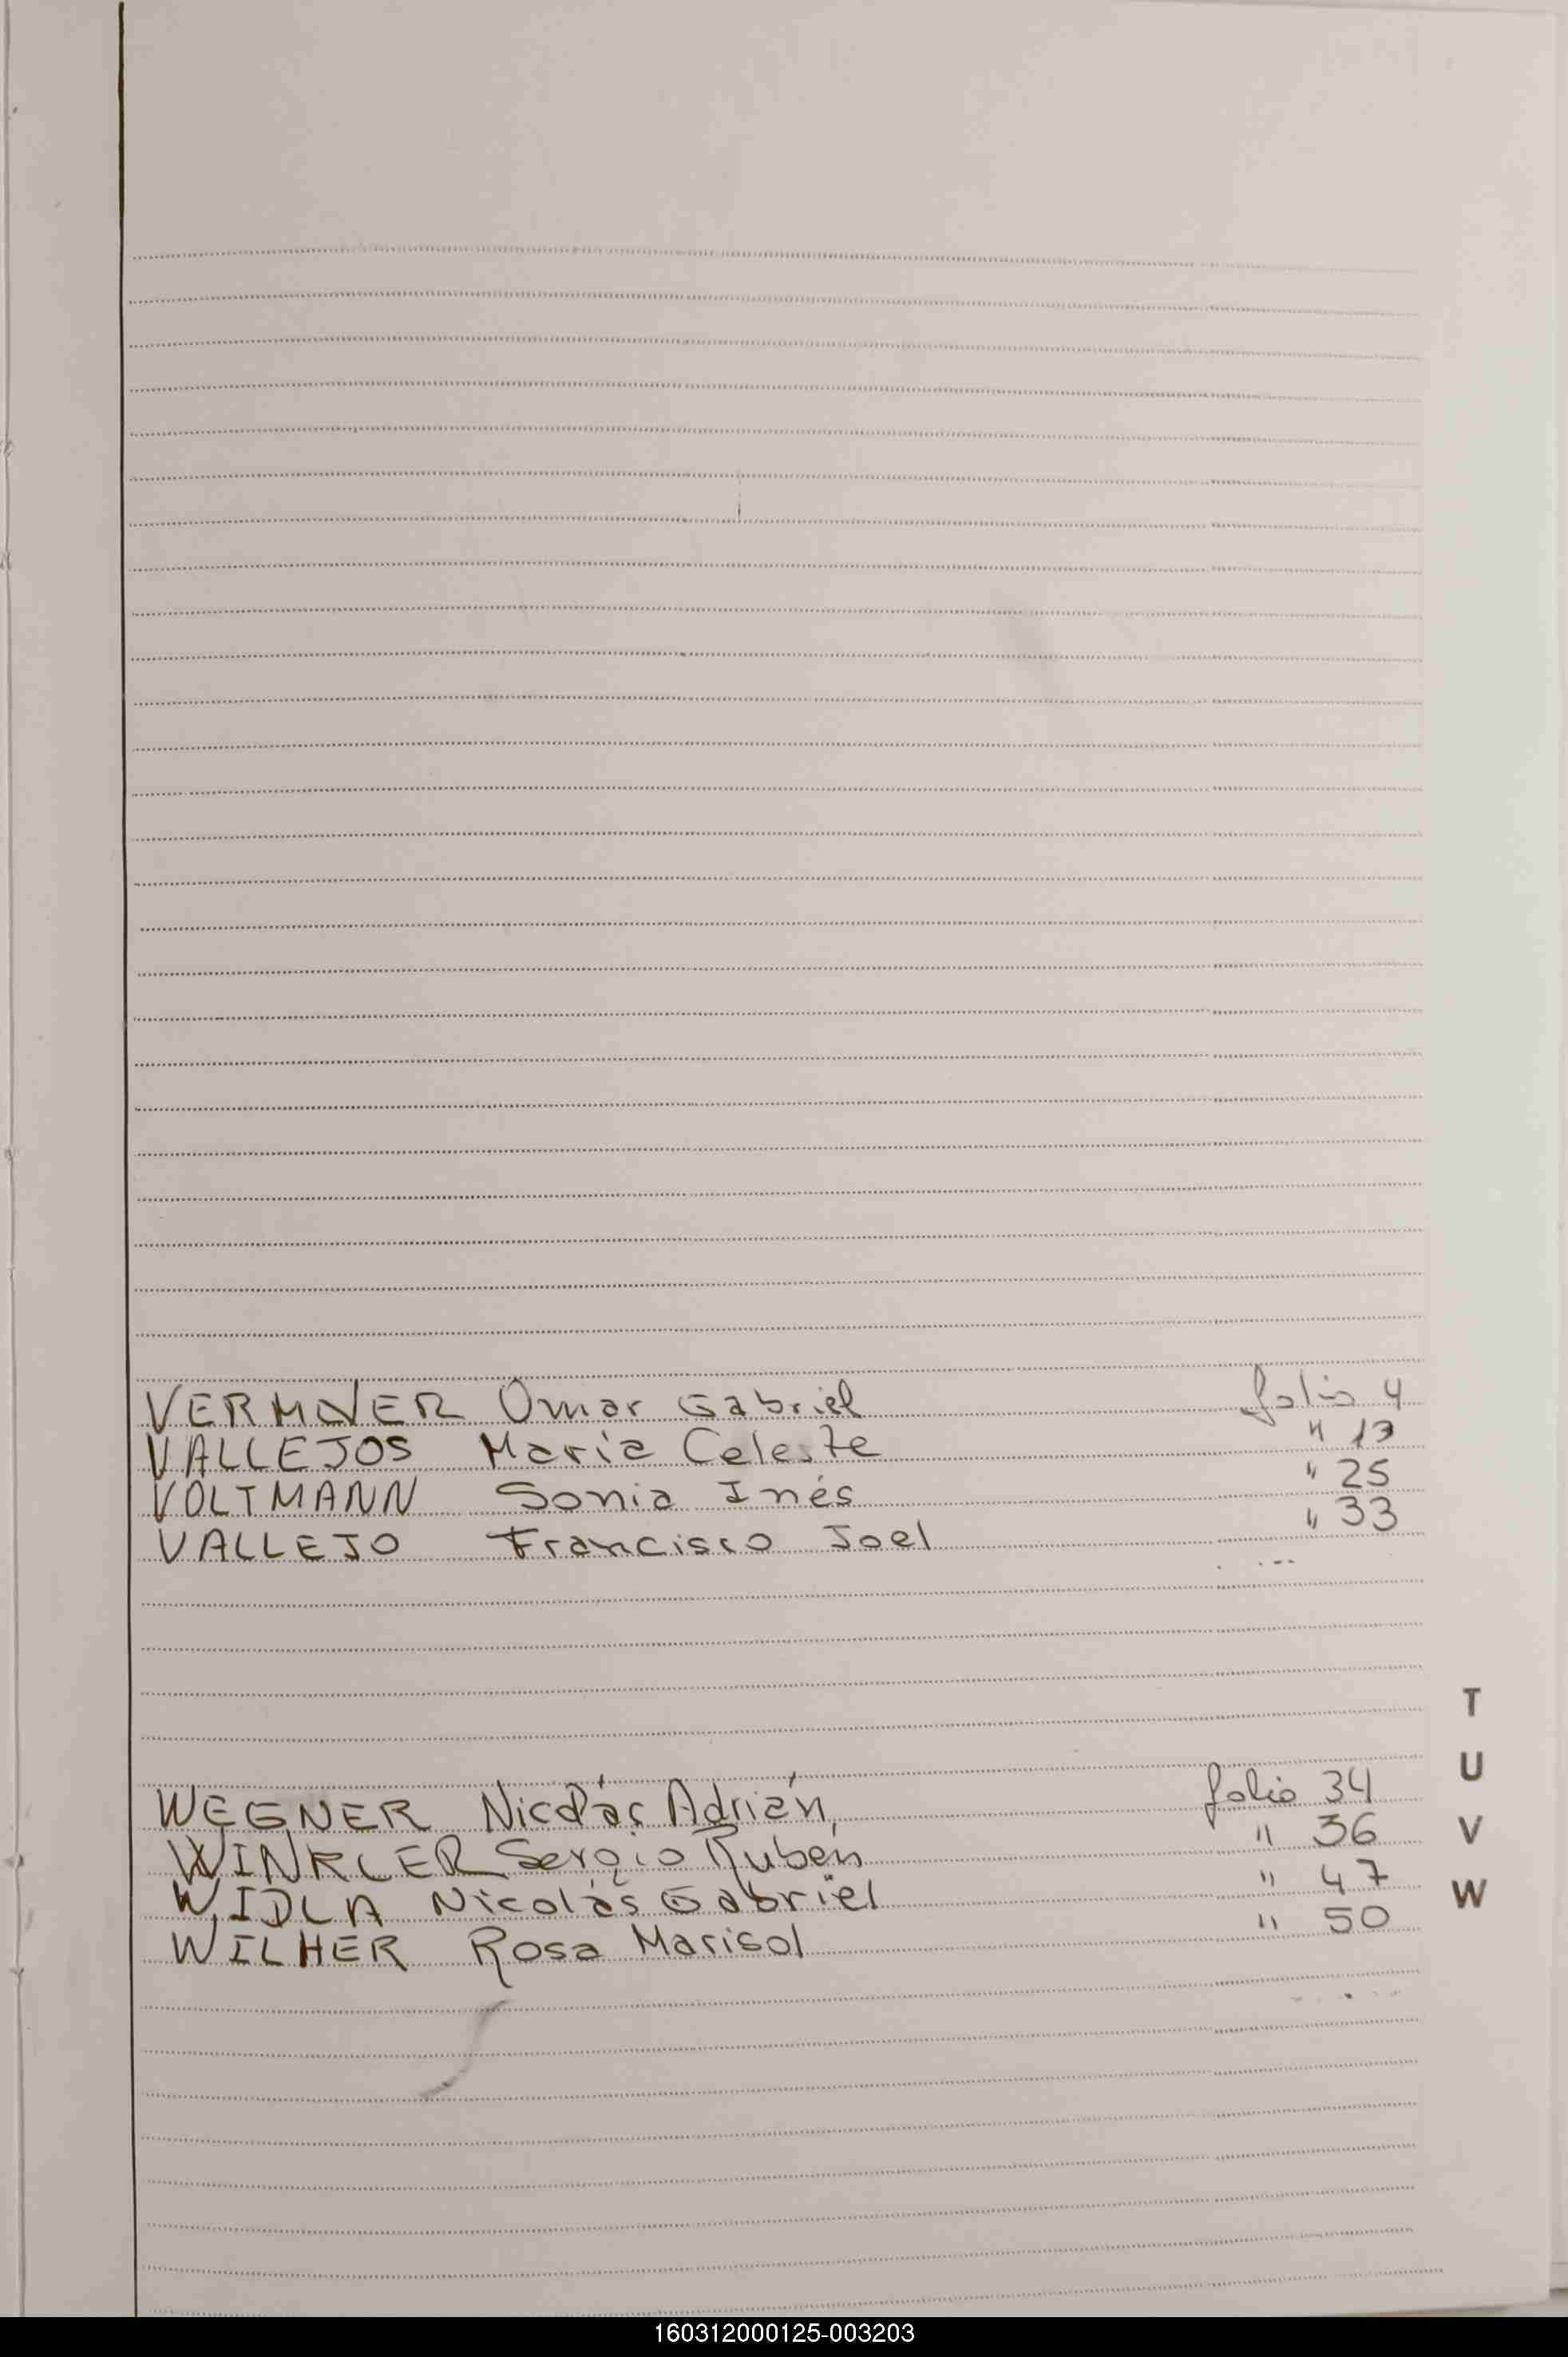 VERMNER Omar Gabriel folio 4
VALLEJOS María Celeste " 13
VOLTMANN Sonia Inés " 25
VALLEJO Francisco Joel " 33
T
U
WEGNER Nicolás Adrián, folio 34
V
WINKLER Sergio Rubén " 36
WIDLA Nicolás Gabriel " 47
W
WILHER Rosa Marisol " 50
160312000125-003203